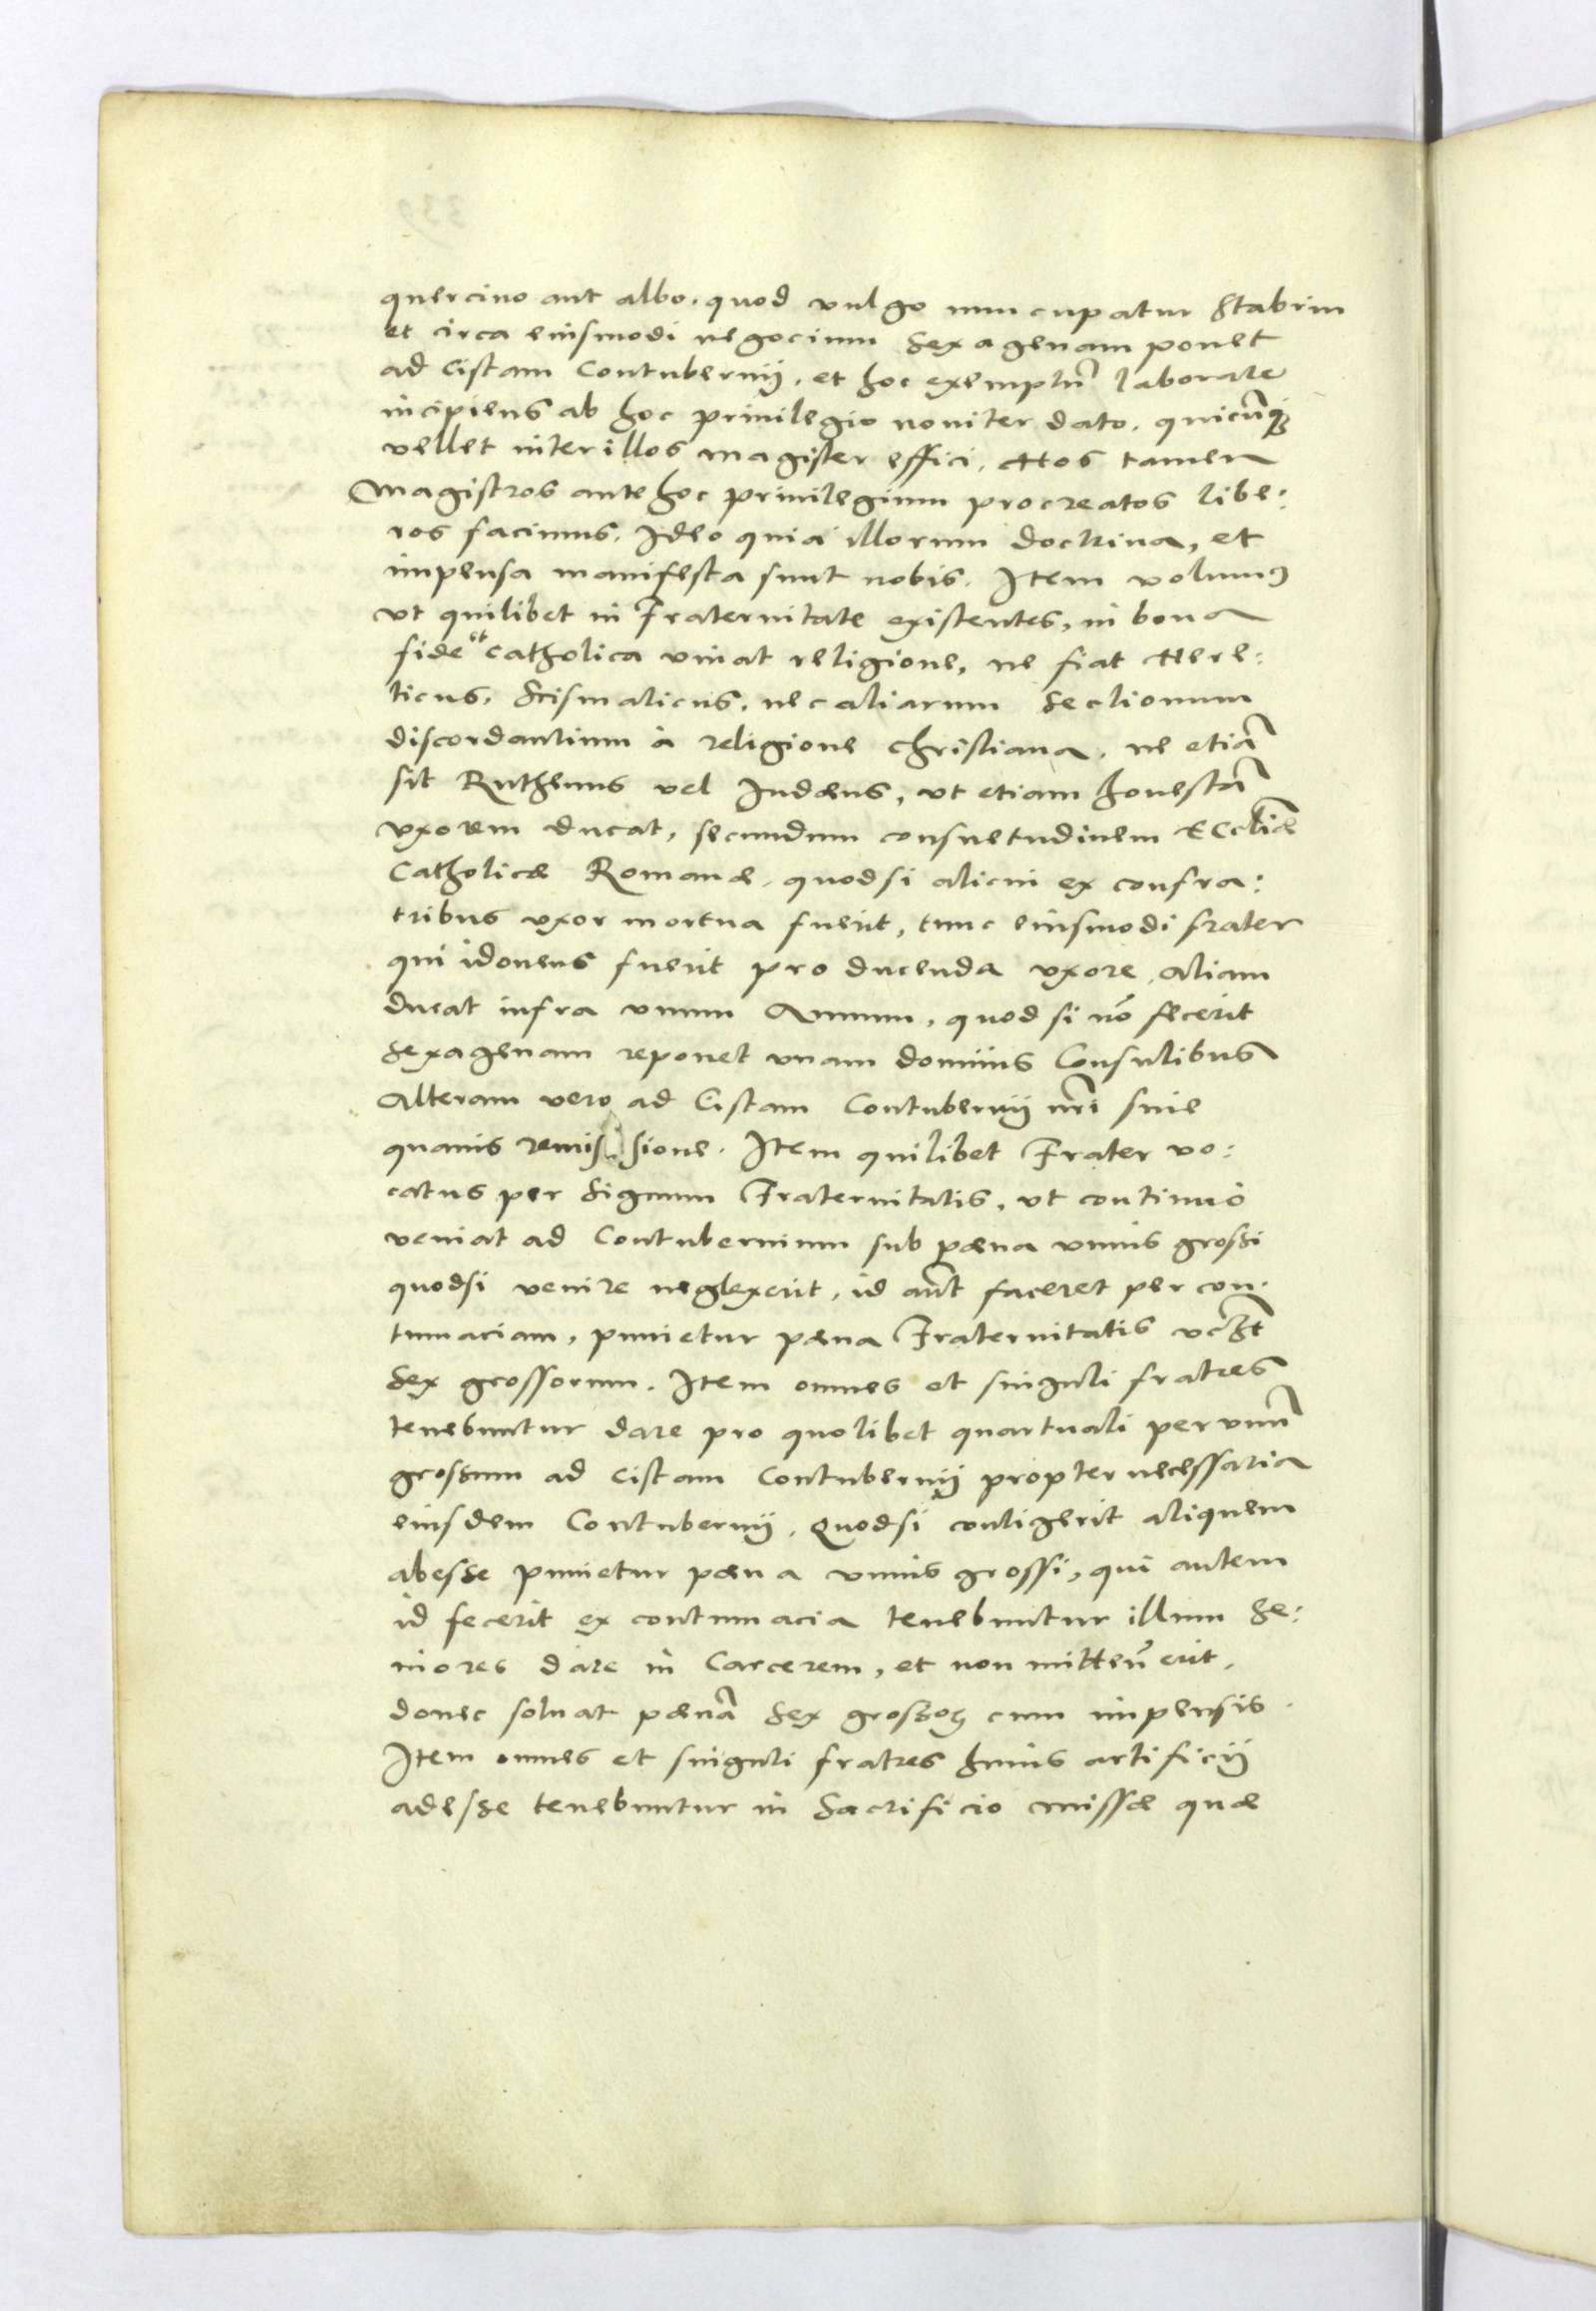 quercino aut albo. quod vulgo nuncupatur Stabrin
et circa eiusmodi negocium sexagenam ponet
ad Cistam Contubernij. et hoc exemplũ laborare
incipiens ab hoc priuilegio nouiter dato. quicũq;
vellet inter illos magister effici. Hos tamen
Magistros ante hoc priuilegium procreatos libe:
ros facimus. Ideo quia illorum doctrina, et
impensa manifesta sunt nobis. Item volumus
vt quilibet in Fraternitate existentes, in bona
fide et catholica viuat religione, ne fiat Here:
ticus, Scismaticus, nec aliarum sectionum
discordantium à religione christiana. ne etiã
sit Ruthenus vel Iudæus, vt etiam honestã
vxorem ducat, secundum consuetudinem Eccliæ
Catholicæ Romanæ. quodsi alicui ex confra:
tribus vxor mortua fuerit, tunc eiusmodi frater
qui idoneus fuerit pro ducenda vxore, aliam
ducat infra vnum Annum, quod si nõ fecerit
sexagenam reponet vnam dominis Consulibus
Alteram vero ad Cistam Contubernij nr̃i sine
quauis remissione. Item quilibet Frater vo:
catus per Signum Fraternitatis, vt continuò
veniat ad Contubernium sub pæna vnius grossi
quodsi venire neglexerit, id aũt faceret per con:
tumaciam, punietur pæna Fraternitatis vczt
sex grossorum. Item omnes et singuli fratres
tenebuntur dare pro quolibet quartuali per vnũ
grossum ad Cistam Contubernij propter necessaria
eiusdem Contubernij. Quodsi contigerit aliquem
abesse punietur pæna vnius grossi, qui autem
id fecerit ex contumacia tenebuntur illum Se:
niores dare in Carcerem, et non mitteñ erit,
donec soluat pænã sex grossoꝝ cum impensis.
Item omnes et singuli fratres huius artificij
adesse tenebuntur in Sacrificio missæ quæ